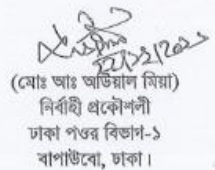 ২২/১২/২০২১
(মোঃ আঃ আউয়াল মিয়া)
নির্বাহী প্রকৌশলী
ঢাকা পওর বিভাগ-১
বাপাউবো, ঢাকা।